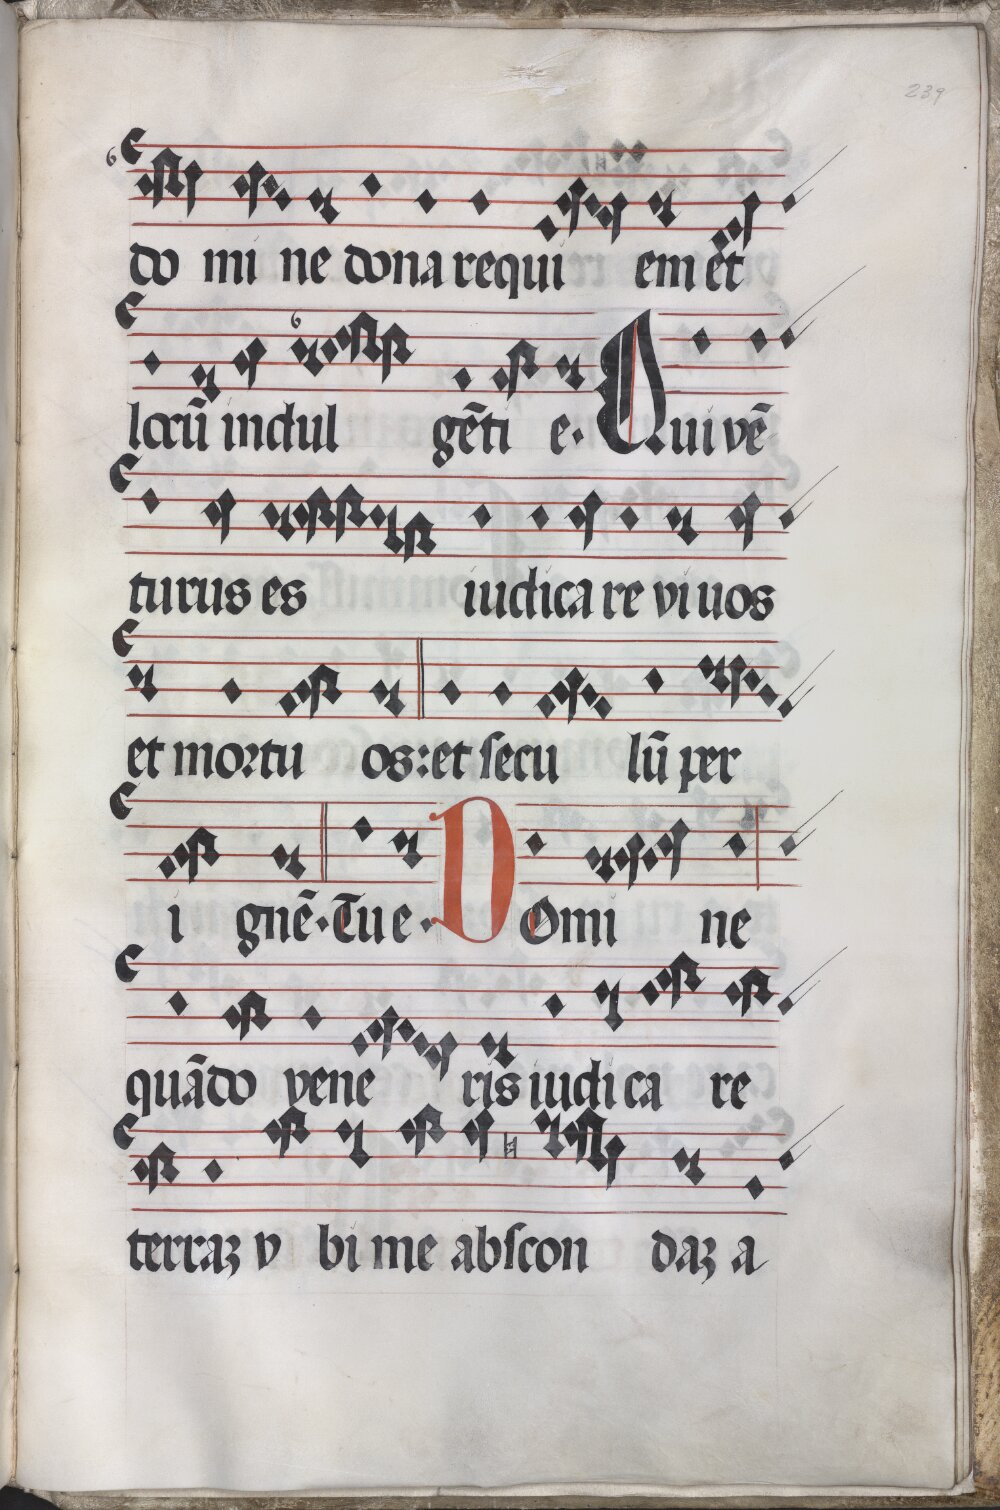 239
do mi ne dona requi em et
locū indul gēti e. Qui vē
turus es iudica re vi uos
et mortu os: et secu lū per
i gnē. Tu e. DOmi ne
quādo vene ris iudi ca re
terraʒ v bi me abscon daʒ a